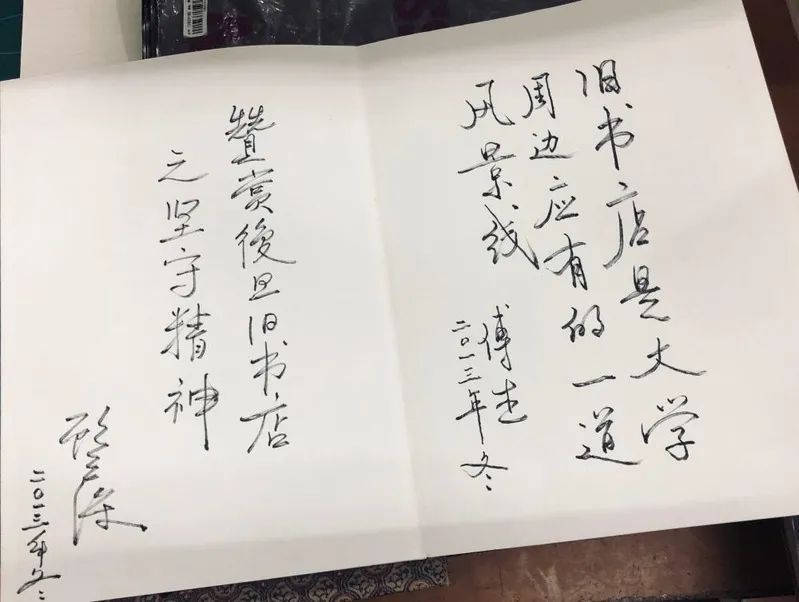 旧书店是大学
周边应有的一道
风景线
傅杰
二〇一三年冬
贊赏復旦旧书店
之坚守精神
顾云深
二〇一三年冬